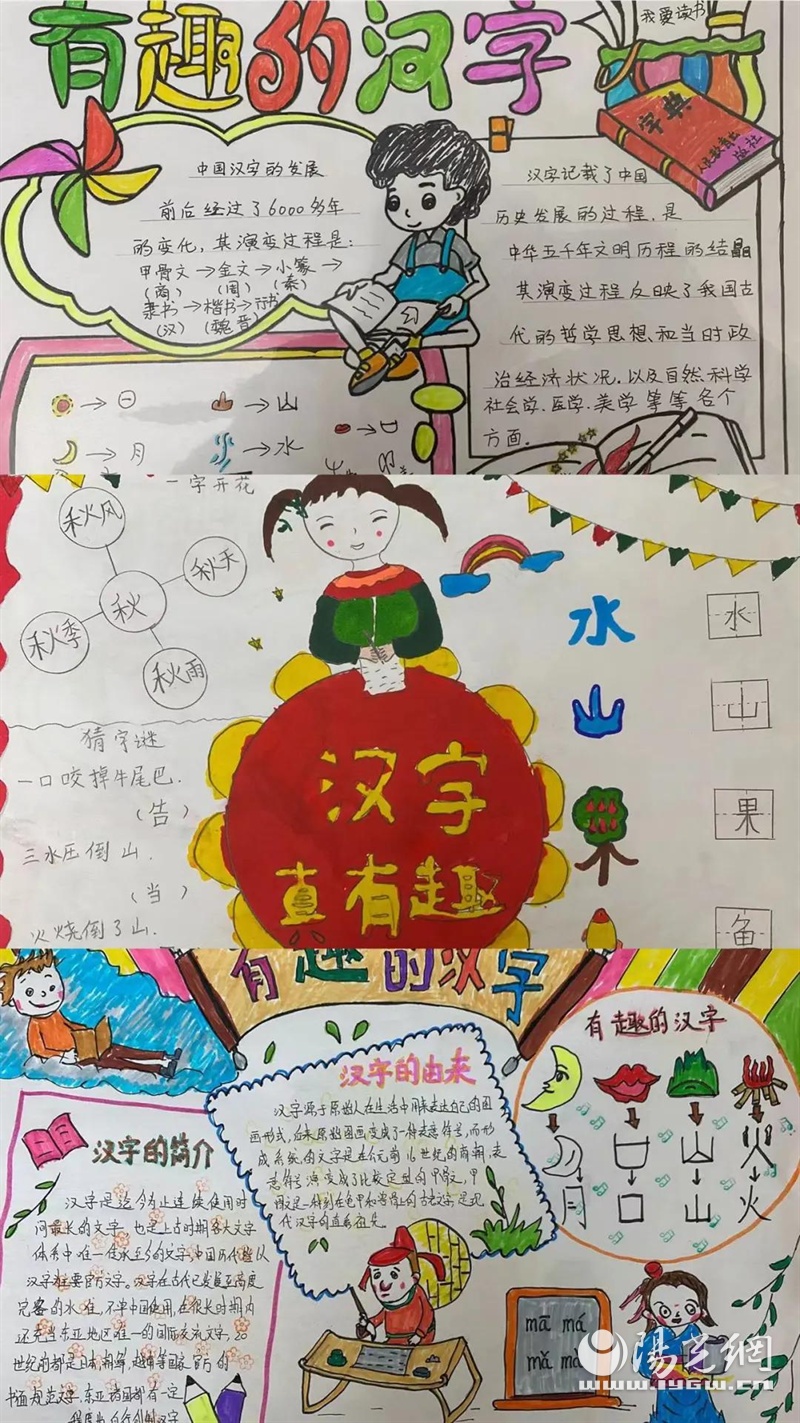 有趣的汉字
我爱读书
字典
人民教育出
版社
中国汉字的发展
前后经过了6000多年
的变化,其演变过程是:
甲骨文→金文→小篆→
(商) (周) (秦)
隶书→楷书→行书
(汉) (魏晋)
→日
→山
→口
→月
→水
汉字记载了中国
历史发展的过程,是
中华五千年文明历程的结晶
其演变过程反映了我国古
代的哲学思想、和当时政
治经济状况.以及自然科学
社会学、医学、美学等等各个
方面.
一字开花
秋风
秋天
秋
秋季
秋雨
猜字谜
一口咬掉牛尾巴.
(告)
三水压倒山.
(当)
火烧倒了山.
汉字
真有趣
水
水
山
山
果
鱼
有趣的汉字
有趣的汉字
月
口
山
火
汉字的由来
汉字源于原始人在生活中用来表达自己的图
画形式,后来原始图画变成了一种表意符号,而形
成系统的文字是在公元前16世纪的商朝,表
意符号演变成了比较定型的甲骨文,甲
骨文是一种刻在龟甲和兽骨上的古老文字,是现
代汉字的直系祖先
汉字的简介
汉字是迄今为止连续使用时
间最长的文字,也是上古时期各大文字
体系中唯一传承至今的文字,中国历代皆以
汉字为主要官方文字。汉字在古代已发展至高度
完备的水准,不单中国使用,在很长时期内
还充当东亚地区唯一的国际交流文字,20
世纪前都是日本、朝鲜、越南等国家官方的
书面规范文字,东亚诸国都有一定
程度的自行创制汉字
mā má
mǎ mà
阳光网
www.iygw.cn